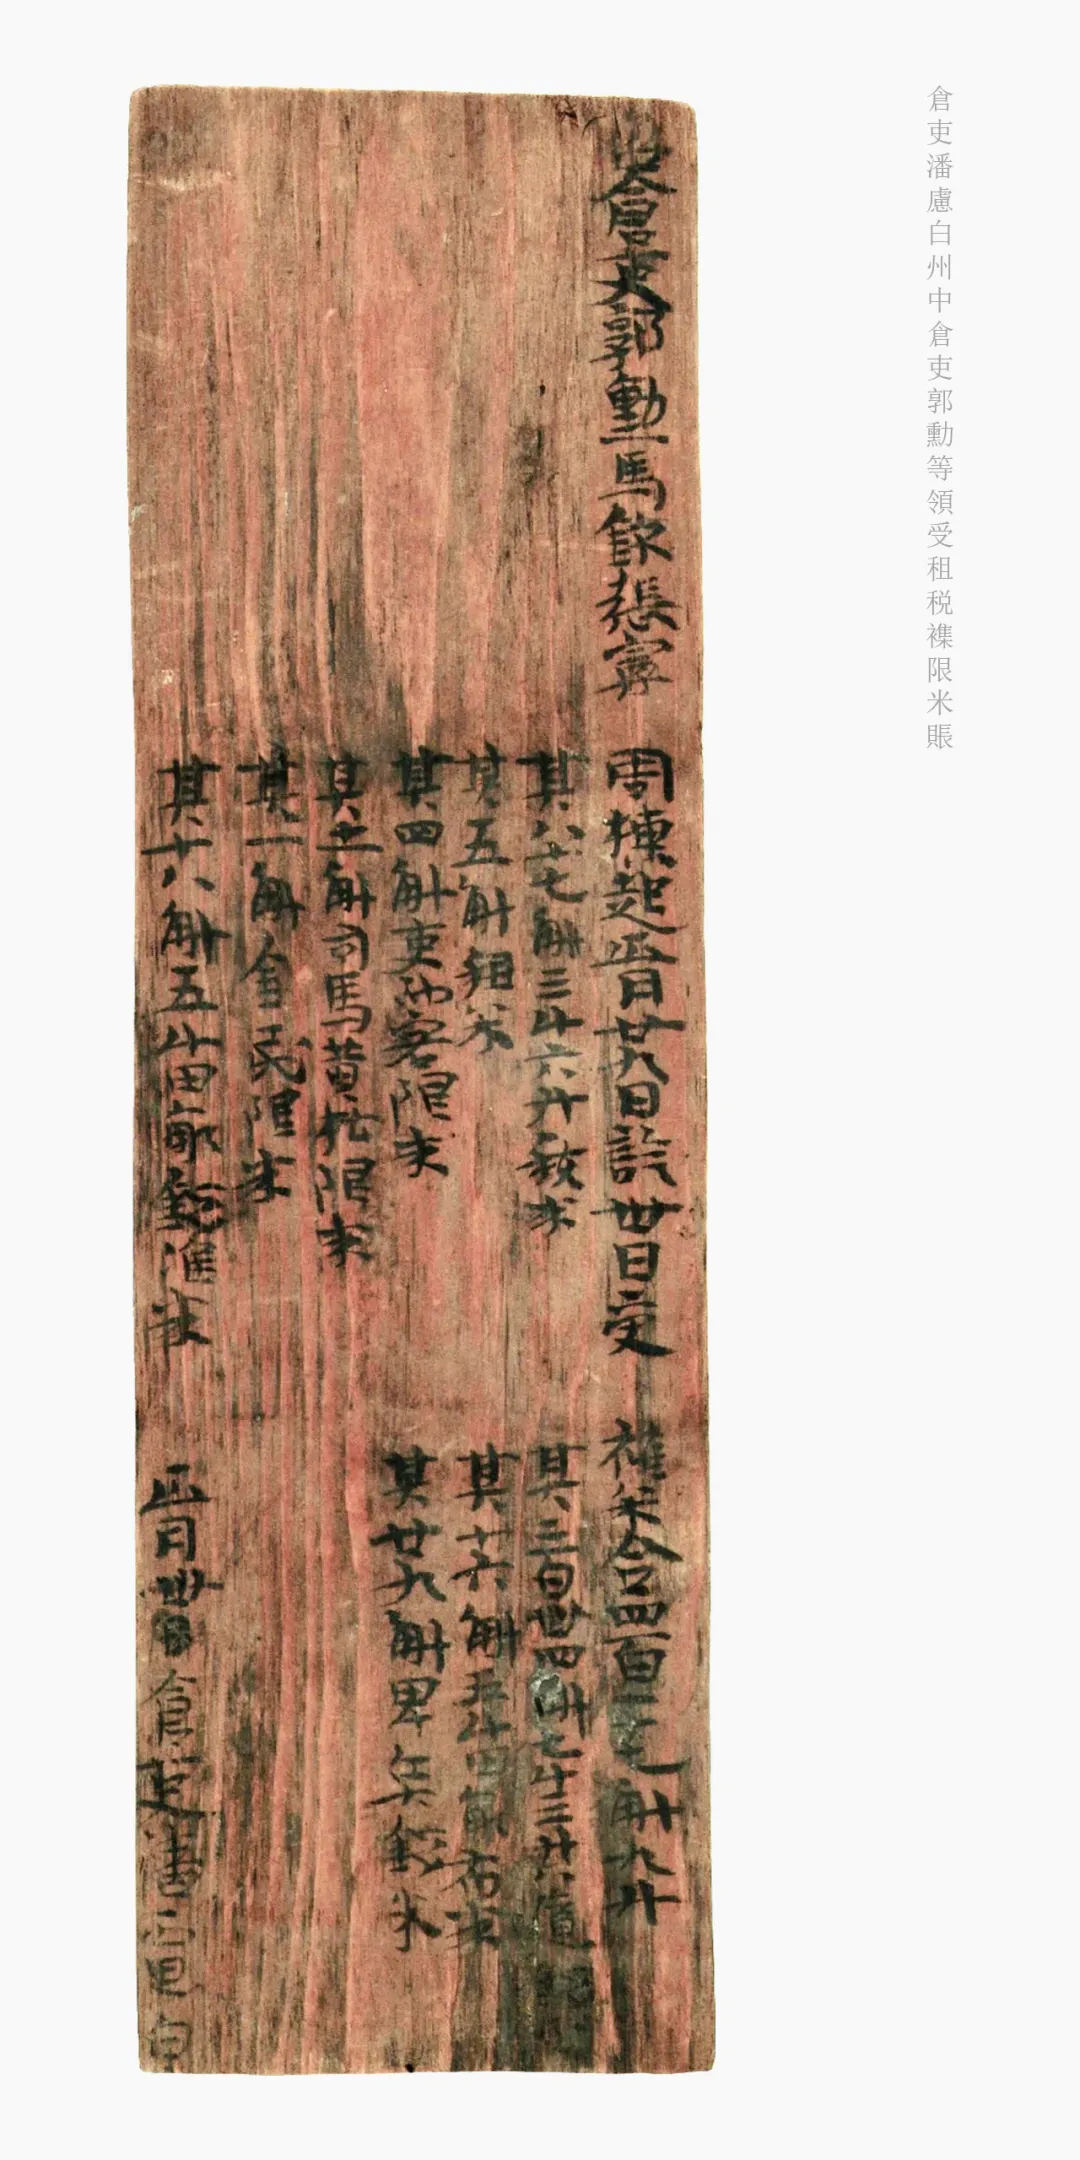 倉吏潘慮白州中倉吏郭勳等領受租税襍限米賬
中倉吏郭勳馬欽張曼 周棟起正月廿九日訖卅日受 襍米合四百一十七斛九升
其八十七斛三斗六升税米 其二百卌四斛七斗三升
其五斛租米 其十六斛五斗田畝布米
其四斛吏帥客限米 其廿九斛米
其十一斛司馬黃松限米
其一斛金民限米
其十八斛五斗田畝錢准米 正月卅日倉吏潘慮白